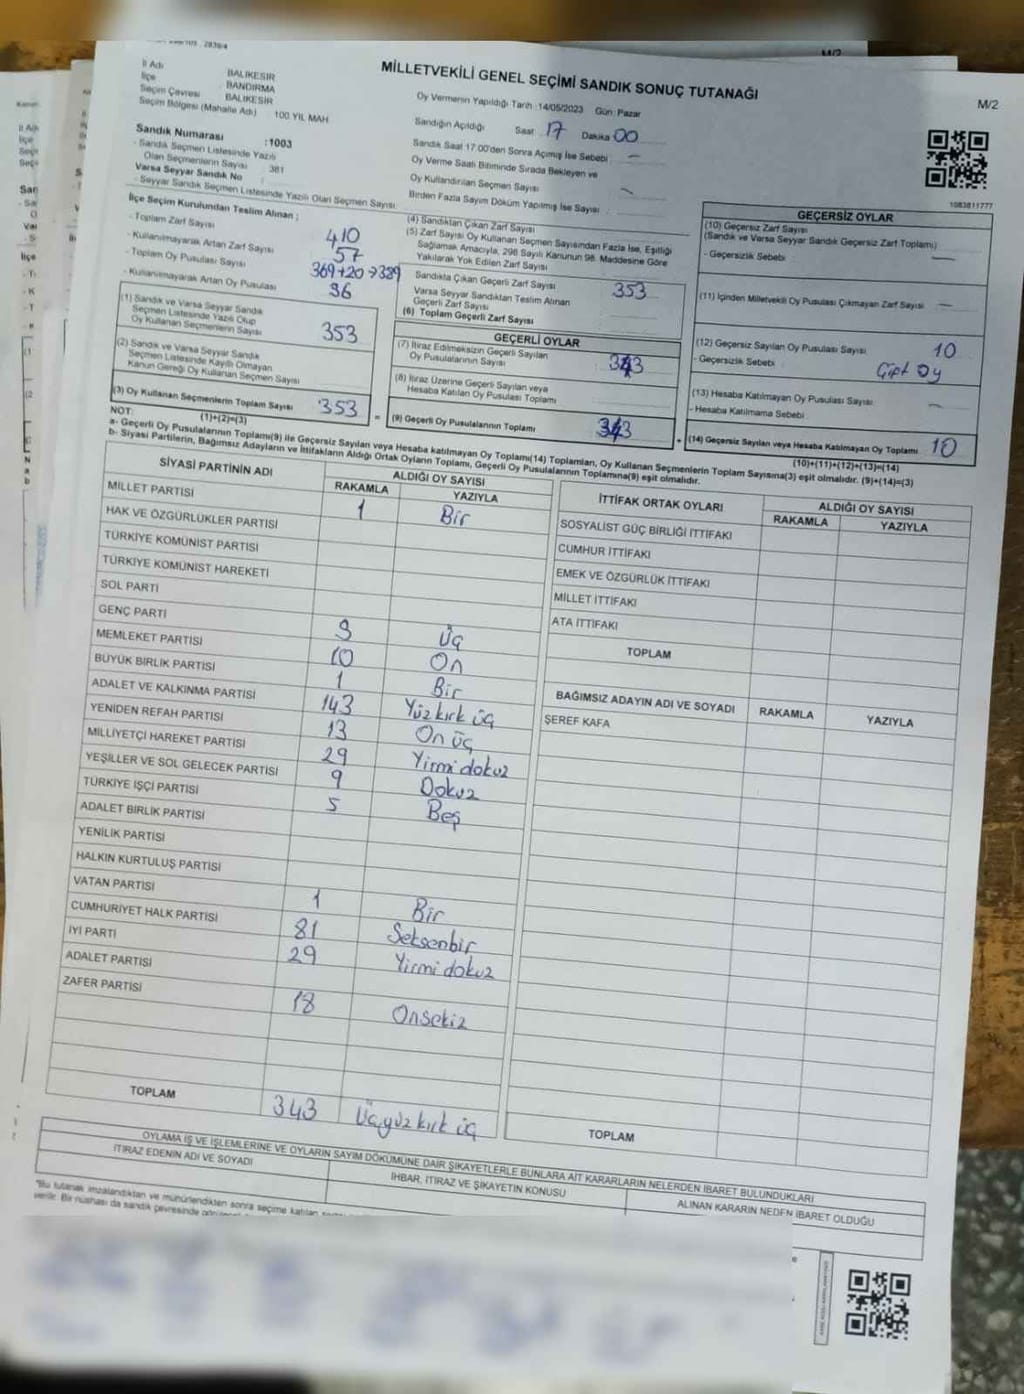 M/2
MİLLETVEKİLİ GENEL SEÇİMİ SANDIK SONUÇ TUTANAĞI
M/2
İl Adı BALIKESİR
İlçe BANDIRMA
Seçim Çevresi BALIKESİR
Seçim Bölgesi (Mahalle Adı) 100.YIL MAH
Oy Vermenin Yapıldığı Tarih :14/05/2023 Gün: Pazar
Sandığın Açıldığı Saat 17 Dakika 00
Sandık Saat 17:00'den Sonra Açılmış İse Sebebi –
Oy Verme Saati Bitiminde Sırada Bekleyen ve
Oy Kullandırılan Seçmen Sayısı
Birden Fazla Sayım Döküm Yapılmış İse Sayısı
Sandık Numarası :1003
- Sandık Seçmen Listesinde Yazılı
Olan Seçmenlerin Sayısı 381
Varsa Seyyar Sandık No
- Seyyar Sandık Seçmen Listesinde Yazılı Olan Seçmen Sayısı:
1083811777
İlçe Seçim Kurulundan Teslim Alınan ;
- Toplam Zarf Sayısı 410
- Kullanılmayarak Artan Zarf Sayısı 57
- Toplam Oy Pusulası Sayısı 369+20→389
- Kullanılmayarak Artan Oy Pusulası 36
(1) Sandık ve Varsa Seyyar Sandık
Seçmen Listesinde Yazılı Olup
Oy Kullanan Seçmenlerin Sayısı 353
(2) Sandık ve Varsa Seyyar Sandık
Seçmen Listesinde Kayıtlı Olmayan
Kanun Gereği Oy Kullanan Seçmen Sayısı
(3) Oy Kullanan Seçmenlerin Toplam Sayısı 353
(1)+(2)=(3)
(4) Sandıktan Çıkan Zarf Sayısı
(5) Zarf Sayısı Oy Kullanan Seçmen Sayısından Fazla İse, Eşitliği
Sağlamak Amacıyla, 298 Sayılı Kanunun 98. Maddesine Göre
Yakılarak Yok Edilen Zarf Sayısı
Sandıkta Çıkan Geçerli Zarf Sayısı 353
Varsa Seyyar Sandıktan Teslim Alınan
Geçerli Zarf Sayısı
(6) Toplam Geçerli Zarf Sayısı
GEÇERLİ OYLAR
(7) İtiraz Edilmeksizin Geçerli Sayılan
Oy Pusulalarının Sayısı 343
(8) İtiraz Üzerine Geçerli Sayılan veya
Hesaba Katılan Oy Pusulası Toplamı
= (9) Geçerli Oy Pusulalarının Toplamı 343
GEÇERSİZ OYLAR
(10) Geçersiz Zarf Sayısı
(Sandık ve Varsa Seyyar Sandık Geçersiz Zarf Toplamı)
- Geçersizlik Sebebi —
(11) İçinden Milletvekili Oy Pusulası Çıkmayan Zarf Sayısı —
(12) Geçersiz Sayılan Oy Pusulası Sayısı 10
- Geçersizlik Sebebi Çift Oy
(13) Hesaba Katılmayan Oy Pusulası Sayısı –
- Hesaba Katılmama Sebebi
+ (14) Geçersiz Sayılan veya Hesaba Katılmayan Oy Toplamı 10
(10)+(11)+(12)+(13)=(14)
NOT:
a- Geçerli Oy Pusulalarının Toplamı(9) ile Geçersiz Sayılan veya Hesaba katılmayan Oy Toplamı(14) Toplamları, Oy Kullanan Seçmenlerin Toplam Sayısına(3) eşit olmalıdır. (9)+(14)=(3)
b- Siyasi Partilerin, Bağımsız Adayların ve İttifakların Aldığı Ortak Oyların Toplamı, Geçerli Oy Pusulalarının Toplamına(9) eşit olmalıdır.
SİYASİ PARTİNİN ADI ALDIĞI OY SAYISI
RAKAMLA YAZIYLA
MİLLET PARTİSİ 1 Bir
HAK VE ÖZGÜRLÜKLER PARTİSİ
TÜRKİYE KOMÜNİST PARTİSİ
TÜRKİYE KOMÜNİST HAREKETİ
SOL PARTİ
GENÇ PARTİ 3 üç
MEMLEKET PARTİSİ 10 On
BÜYÜK BİRLİK PARTİSİ 1 Bir
ADALET VE KALKINMA PARTİSİ 143 Yüzkırk üç
YENİDEN REFAH PARTİSİ 13 On üç
MİLLİYETÇİ HAREKET PARTİSİ 29 Yirmidokuz
YEŞİLLER VE SOL GELECEK PARTİSİ 9 Dokuz
TÜRKİYE İŞÇİ PARTİSİ 5 Beş
ADALET BİRLİK PARTİSİ
YENİLİK PARTİSİ
HALKIN KURTULUŞ PARTİSİ
VATAN PARTİSİ 1 Bir
CUMHURİYET HALK PARTİSİ 81 Seksenbir
İYİ PARTİ 29 Yirmidokuz
ADALET PARTİSİ
ZAFER PARTİSİ 18 Onsekiz
TOPLAM 343 Üçyüz kırk üç
İTTİFAK ORTAK OYLARI ALDIĞI OY SAYISI
RAKAMLA YAZIYLA
SOSYALİST GÜÇ BİRLİĞİ İTTİFAKI
CUMHUR İTTİFAKI
EMEK VE ÖZGÜRLÜK İTTİFAKI
MİLLET İTTİFAKI
ATA İTTİFAKI
TOPLAM
BAĞIMSIZ ADAYIN ADI VE SOYADI RAKAMLA YAZIYLA
ŞEREF KAFA
TOPLAM
OYLAMA İŞ VE İŞLEMLERİNE VE OYLARIN SAYIM DÖKÜMÜNE DAİR ŞİKAYETLERLE BUNLARA AİT KARARLARIN NELERDEN İBARET BULUNDUKLARI
İTİRAZ EDENİN ADI VE SOYADI İHBAR, İTİRAZ VE ŞİKAYETİN KONUSU ALINAN KARARIN NEDEN İBARET OLDUĞU
"Bu tutanak imzalandıktan ve mühürlendikten sonra seçime katılan
verilir. Bir nüshası da sandık çevresinde